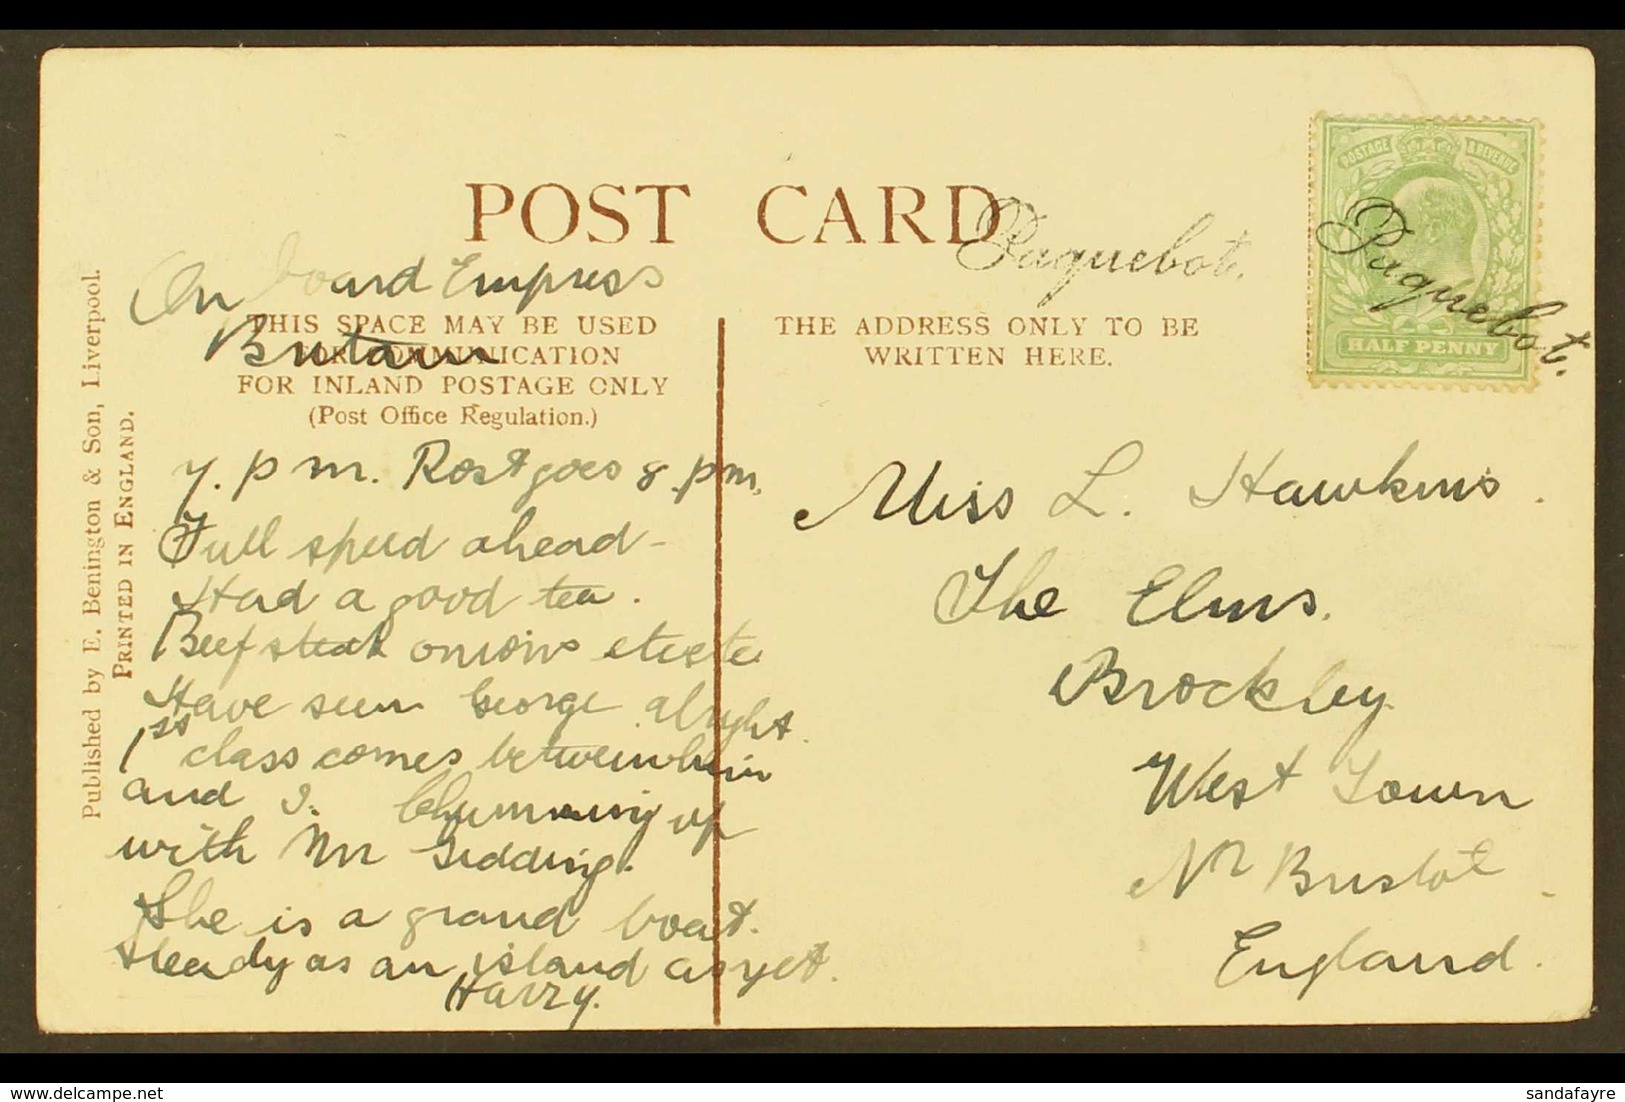 POST CARD
Paquebot.
Paquebot.
POSTAGE & REVENUE
HALF PENNY
On board Empress
Britain
THIS SPACE MAY BE USED
FOR COMMUNICATION
FOR INLAND POSTAGE ONLY
(Post Office Regulation.)
THE ADDRESS ONLY TO BE
WRITTEN HERE.
Published by E. Benington & Son, Liverpool.
PRINTED IN ENGLAND.
7. p m. Post goes 8. pm.
Full speed ahead -
Had a good tea.
Beef steak onions etcetc
Have seen George alright.
1ss class comes between him
and I. Chumming up
with Mr Gidding.
She is a grand boat.
steady as an island as yet.
Harry.
Miss L. Hawkins.
The Elms.
Brockley
West Town
Nr Bristol
England.
delcampe.net
sandafayre